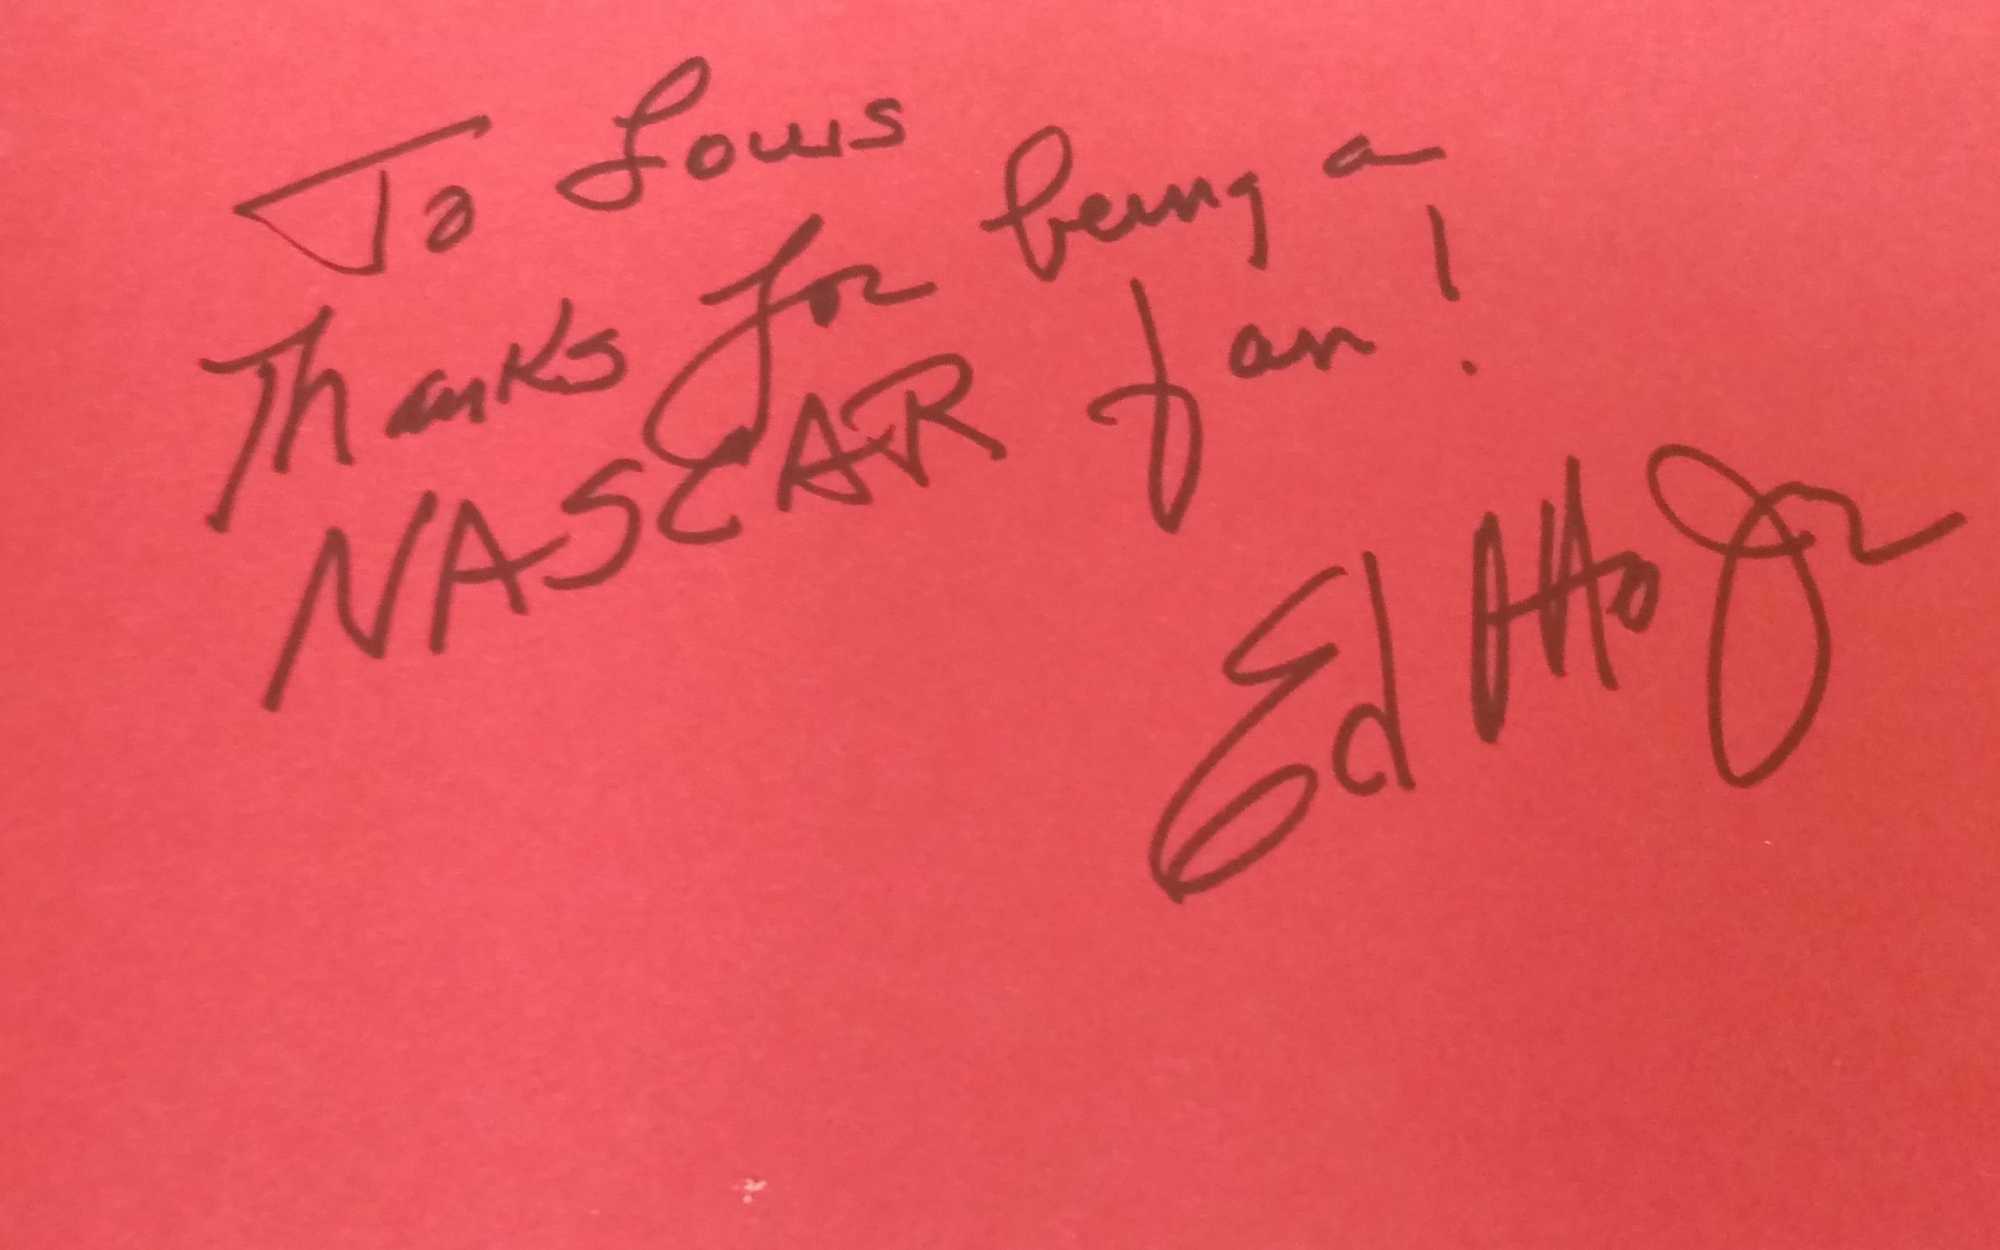 To Louis
Thanks for being a
NASCAR fan!
Ed Otto Jr